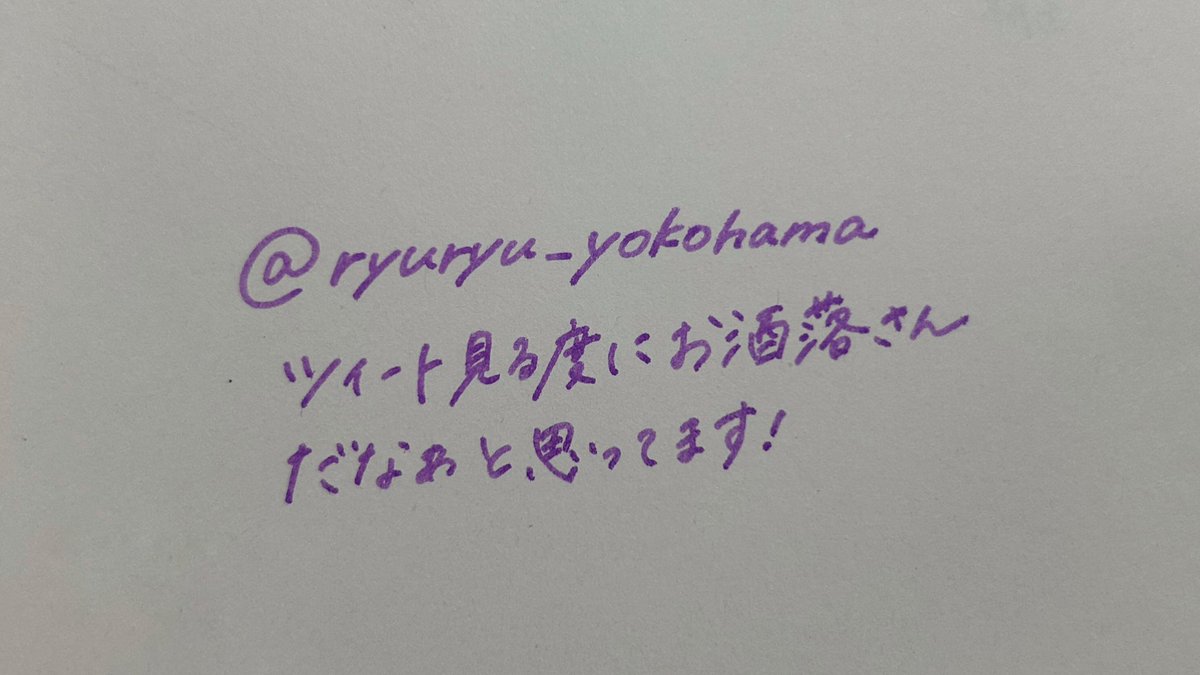 @ryuryu_yokohama
ツイート見る度にお洒落さん
だなぁと思ってます!